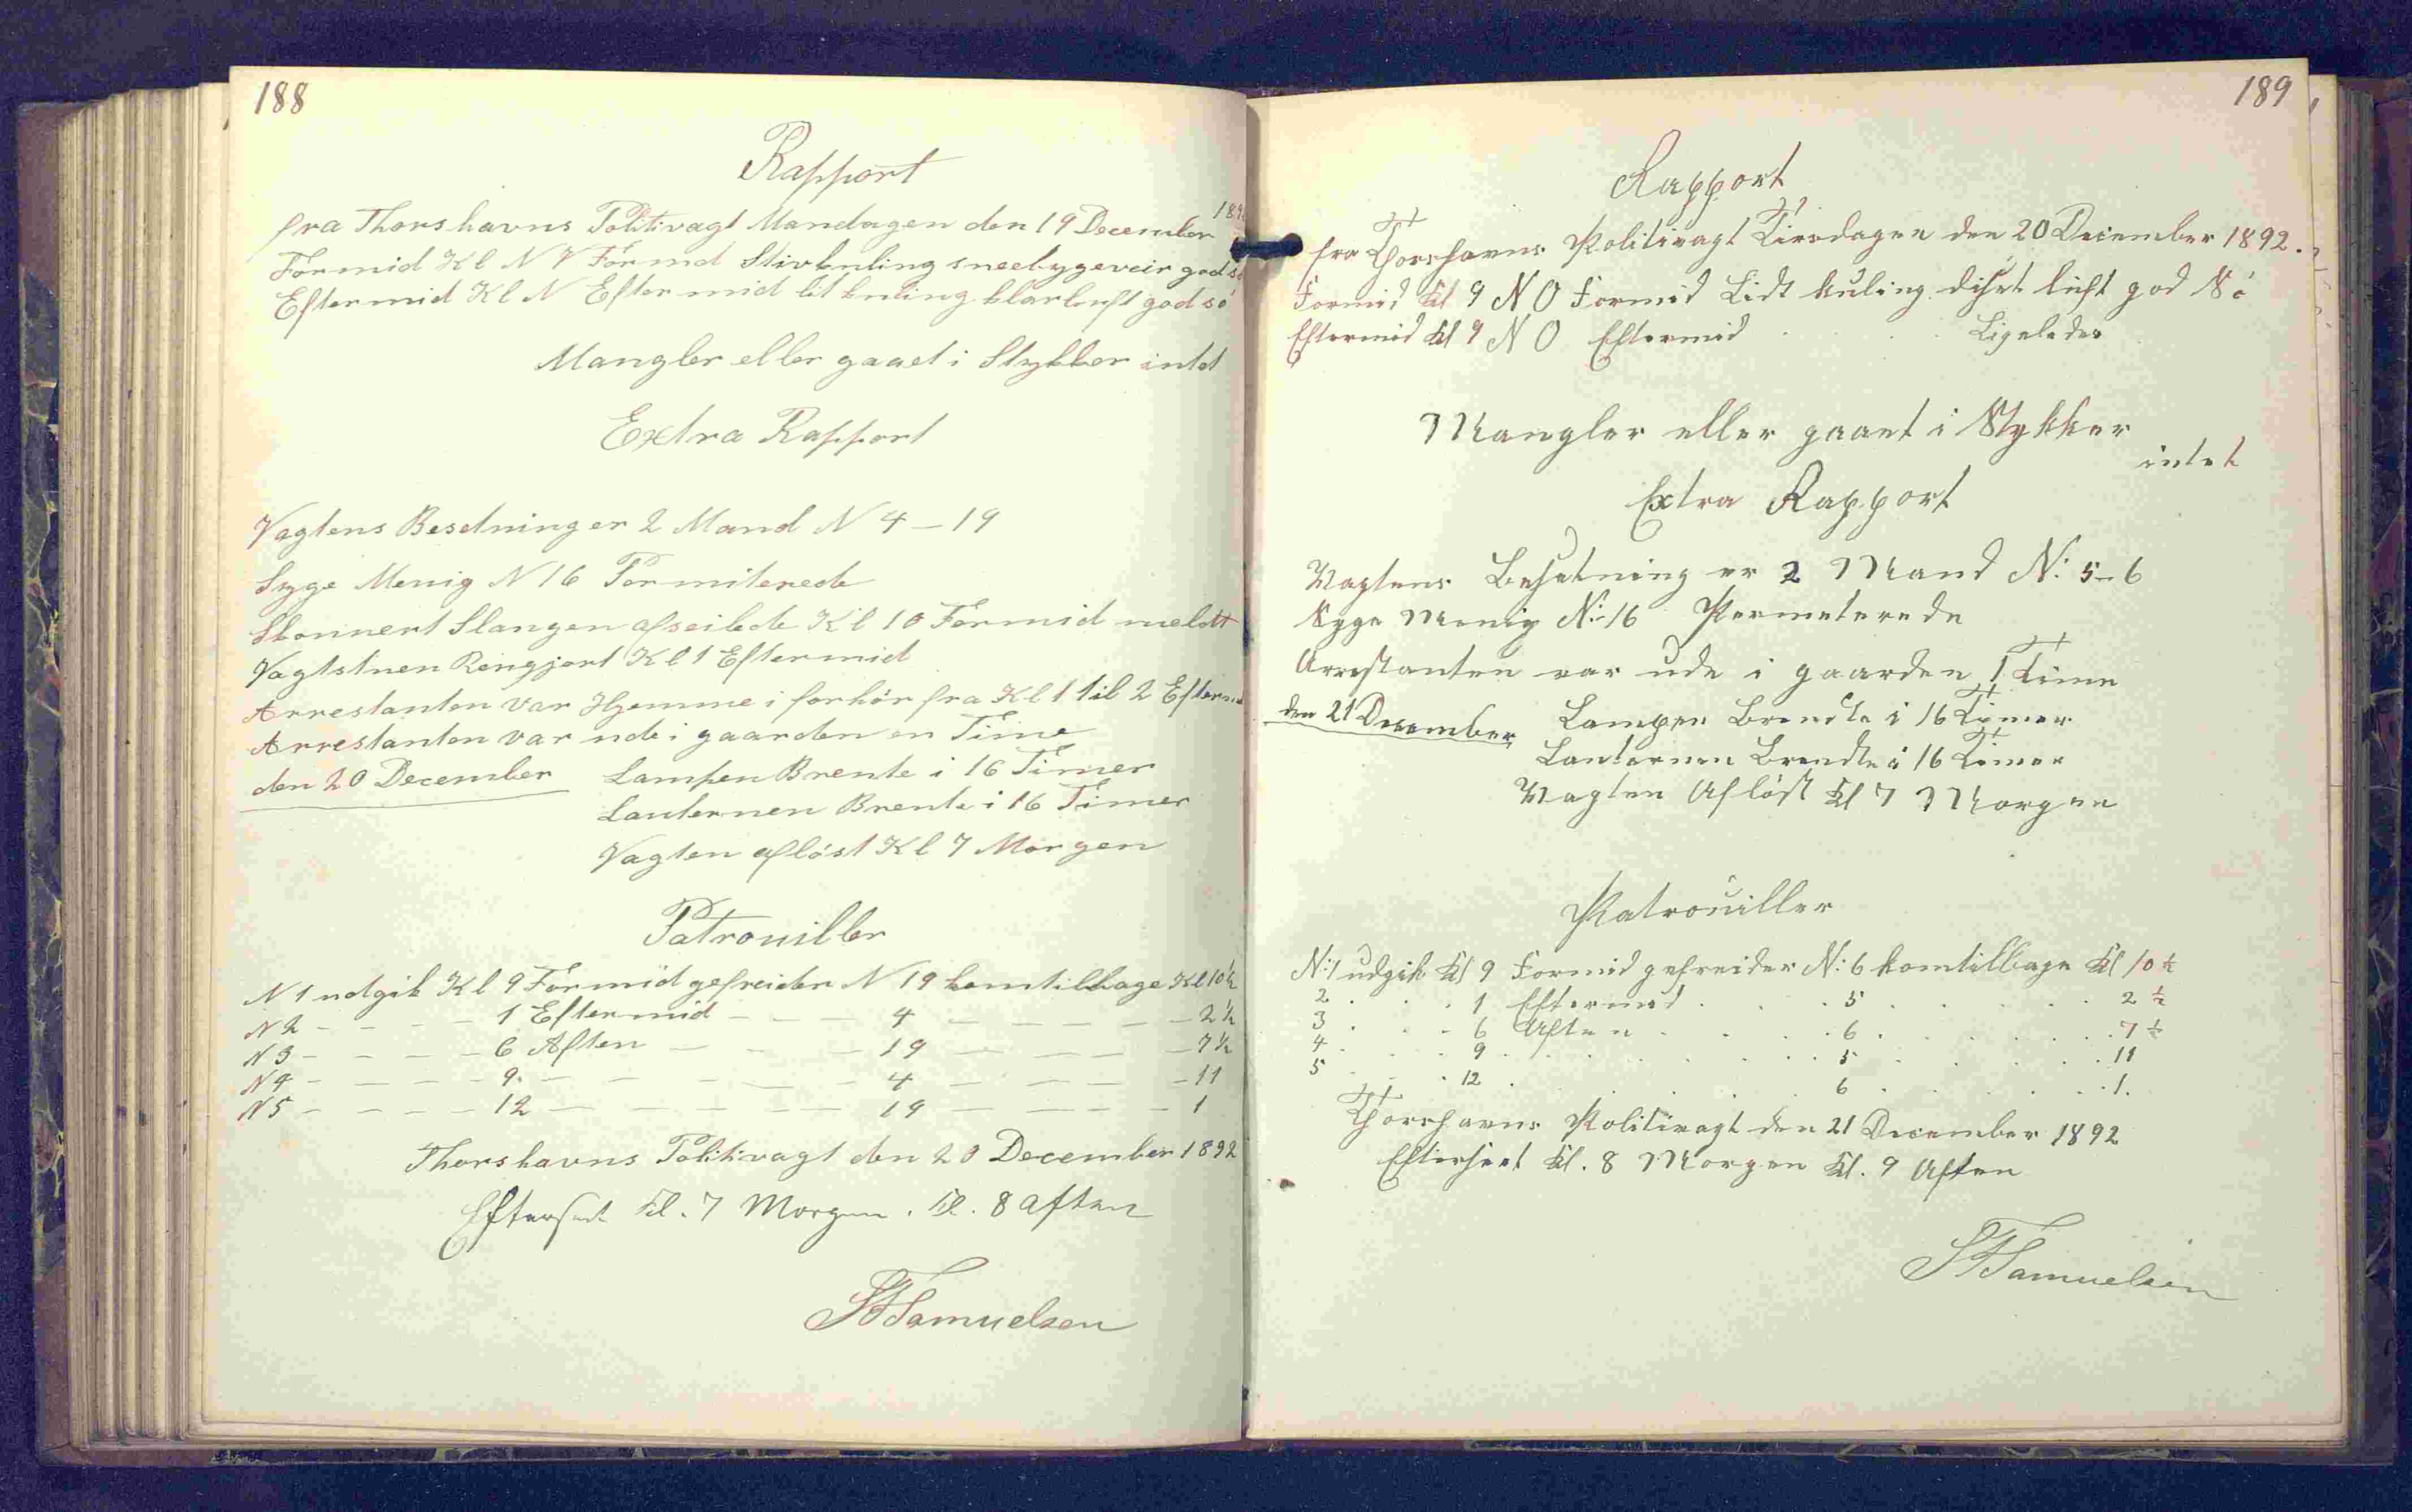 188
Rapport
fra Thorshavns Politivagt Mandagen den 19 December 189
Formid Kl N V Formd Stivkuling sneebygeveir god so
Eftermid Kl N Eftermid lit kuling klarluft god so
Mangler eller gaaet i Stykker intet
Extra Rapport
Vagtens Besetning er 2 Mand N 4 – 19
Syge Menig N 16 Permiterede
Skonnert Slangen afseilede Kl 10 Formid meldt
Vagtstuen Rengjort Kl 1 Eftermid
Arrestanten var Hjemme i forhör fra Kl 1 til 2 Efterm
Arrestanten var ude i gaarden en Time
den 20 December Lampen Brente i 16 Timer
Lanternen Brente i 16 Timer
Vagten aflöst Kl 7 Morgen
Patrouiller
N 1 udgik Kl 9 Formid gefreider N 19 kom tilbage Kl 10 ½
N 2 – – – – 1 Eftermid – – – 4 – – – – – 2 ½
N 3 – – – – 6 Aften – – – 19 – – – – – 7 ½
N 4 – – – – 9 – – – – – 4 – – – – 11
N 5 – – – – 12 – – – – – 19 – – – – 1
Thorshavns Politivagt den 20 December 1892
Efterseet Kl. 7 Morgen. Kl. 8 Aften
Samuelsen
189
Rapport
fra Thorshavns Politivagt Tirsdagen den 20 December 1892.
Formid Kl 9 N O Formid Lidt kuling diset luft god Sö
Eftermid Kl 9 N O Eftermid . . Ligeledes
Mangler eller gaaet i Stykker
intet
Extra Rapport
Vagtens Besetning er 2 Mand N: 5–6
Syge Menig N: 16 Permeterede
Arrestanten var ude i gaarden 1 Time
den 21 December Lampen Brendte i 16 Timer
Lanternen Brendte i 16 Timer
Vagten Aflöst Kl 7 Morgen
Patrouiller
N: 1 udgik Kl 9 Formid gefreider N: 6 kom tilbage Kl 10 ½
2 . . . 1 Eftermid . . . 5 . . . . . 2 ½
3 . . . 6 Aften . . . 6 . . . . . 7 ½
4 . . . 9 . . . . . . 5 . . . . . 11
5 . . . 12 . . . . . . 6 . . . . . 1.
Thorshavns Politivagt den 21 December 1892
Efterseet Kl. 8 Morgen Kl. 9 Aften
Samuelsen